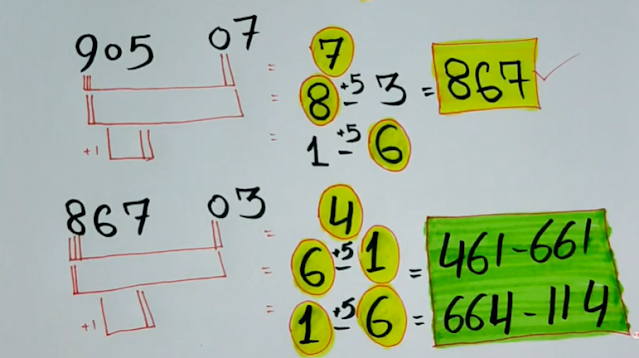 905 07 = 7
= 8 +5 - 3 = 867
+1 = 1 +5 - 6
867 03 = 4
= 6 +5 - 1 = 461-661
+1 = 1 +5 - 6 = 664-114